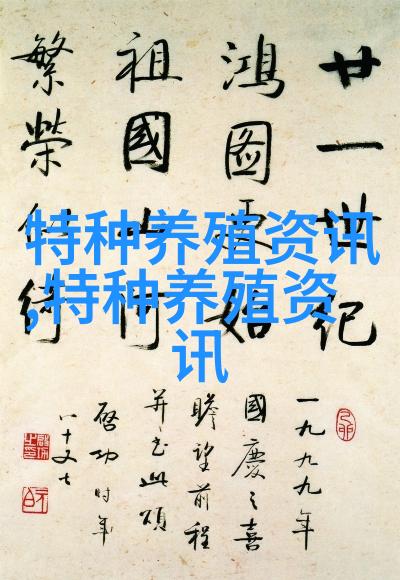 廿一世紀
鴻圖更始
祖國山河
繁榮綺
一九九九年
國慶之喜
瞻望前程
并书此頌
啓功时年
八十又七
特种养殖资讯
,特种养殖资
讯